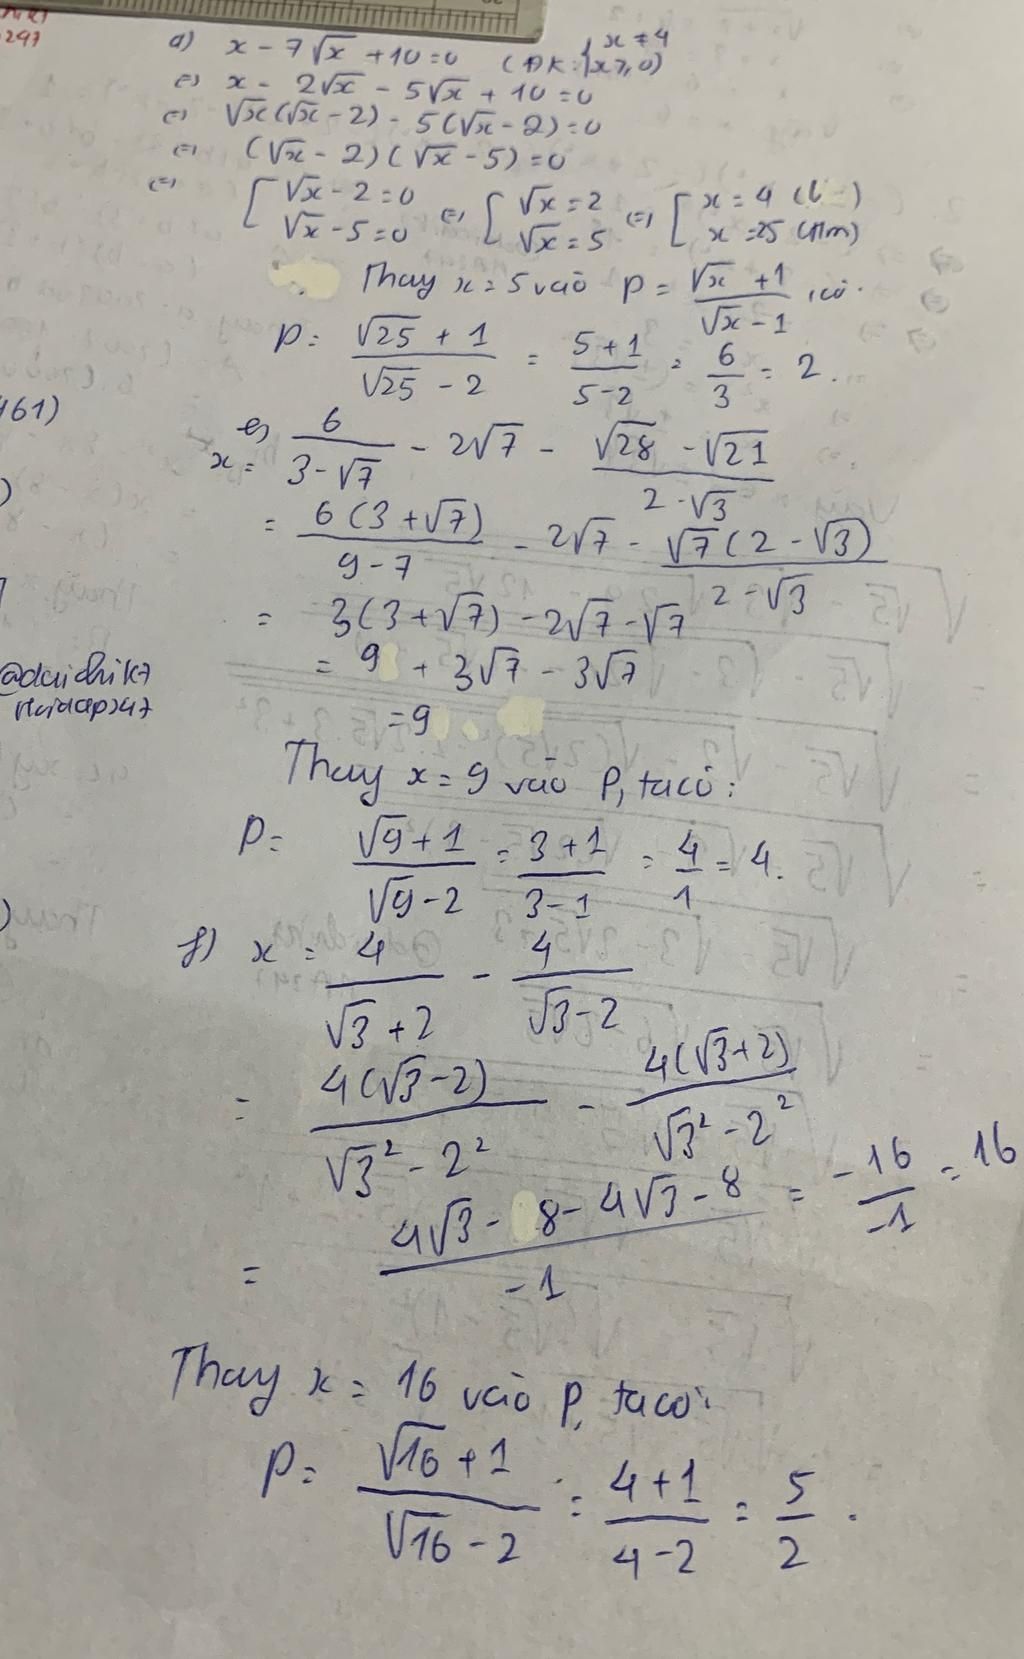 247
a) x - 7√x + 10 = 0 (ĐK: { x ≠ 4
x ⩾ 0)
(=) x - 2√x - 5√x + 10 = 0
(=) √x(√x - 2) - 5(√x - 2) = 0
(=) (√x - 2)(√x - 5) = 0
(=) [ √x - 2 = 0 (=) [ √x = 2 (=) [ x = 4 (L)
√x - 5 = 0 √x = 5 x = 25 (tm)
Thay x = 5 vào P = (√x + 1)/(√x - 1), có.
P = (√25 + 1)/(√25 - 2) = (5 + 1)/(5 - 2) = 6/3 = 2.
461)
e) x = 6/(3 - √7) - 2√7 - (√28 - √21)/(2 - √3)
= 6(3 + √7)/(9 - 7) - 2√7 - √7(2 - √3)/(2 - √3)
= 3(3 + √7) - 2√7 - √7
= 9 + 3√7 - 3√7
= 9
@daichik7
Thay x = 9 vào P, ta có:
P = (√9 + 1)/(√9 - 2) = (3 + 1)/(3 - 1) = 4/1 = 4.
f) x = 4/(√3 + 2) - 4/(√3 - 2)
= 4(√3 - 2)/(√3² - 2²) - 4(√3 + 2)/(√3² - 2²)
= (4√3 - 8 - 4√3 - 8)/(-1) = -16/-1 = 16
Thay x = 16 vào P, ta có:
P = (√16 + 1)/(√16 - 2) = (4 + 1)/(4 - 2) = 5/2.